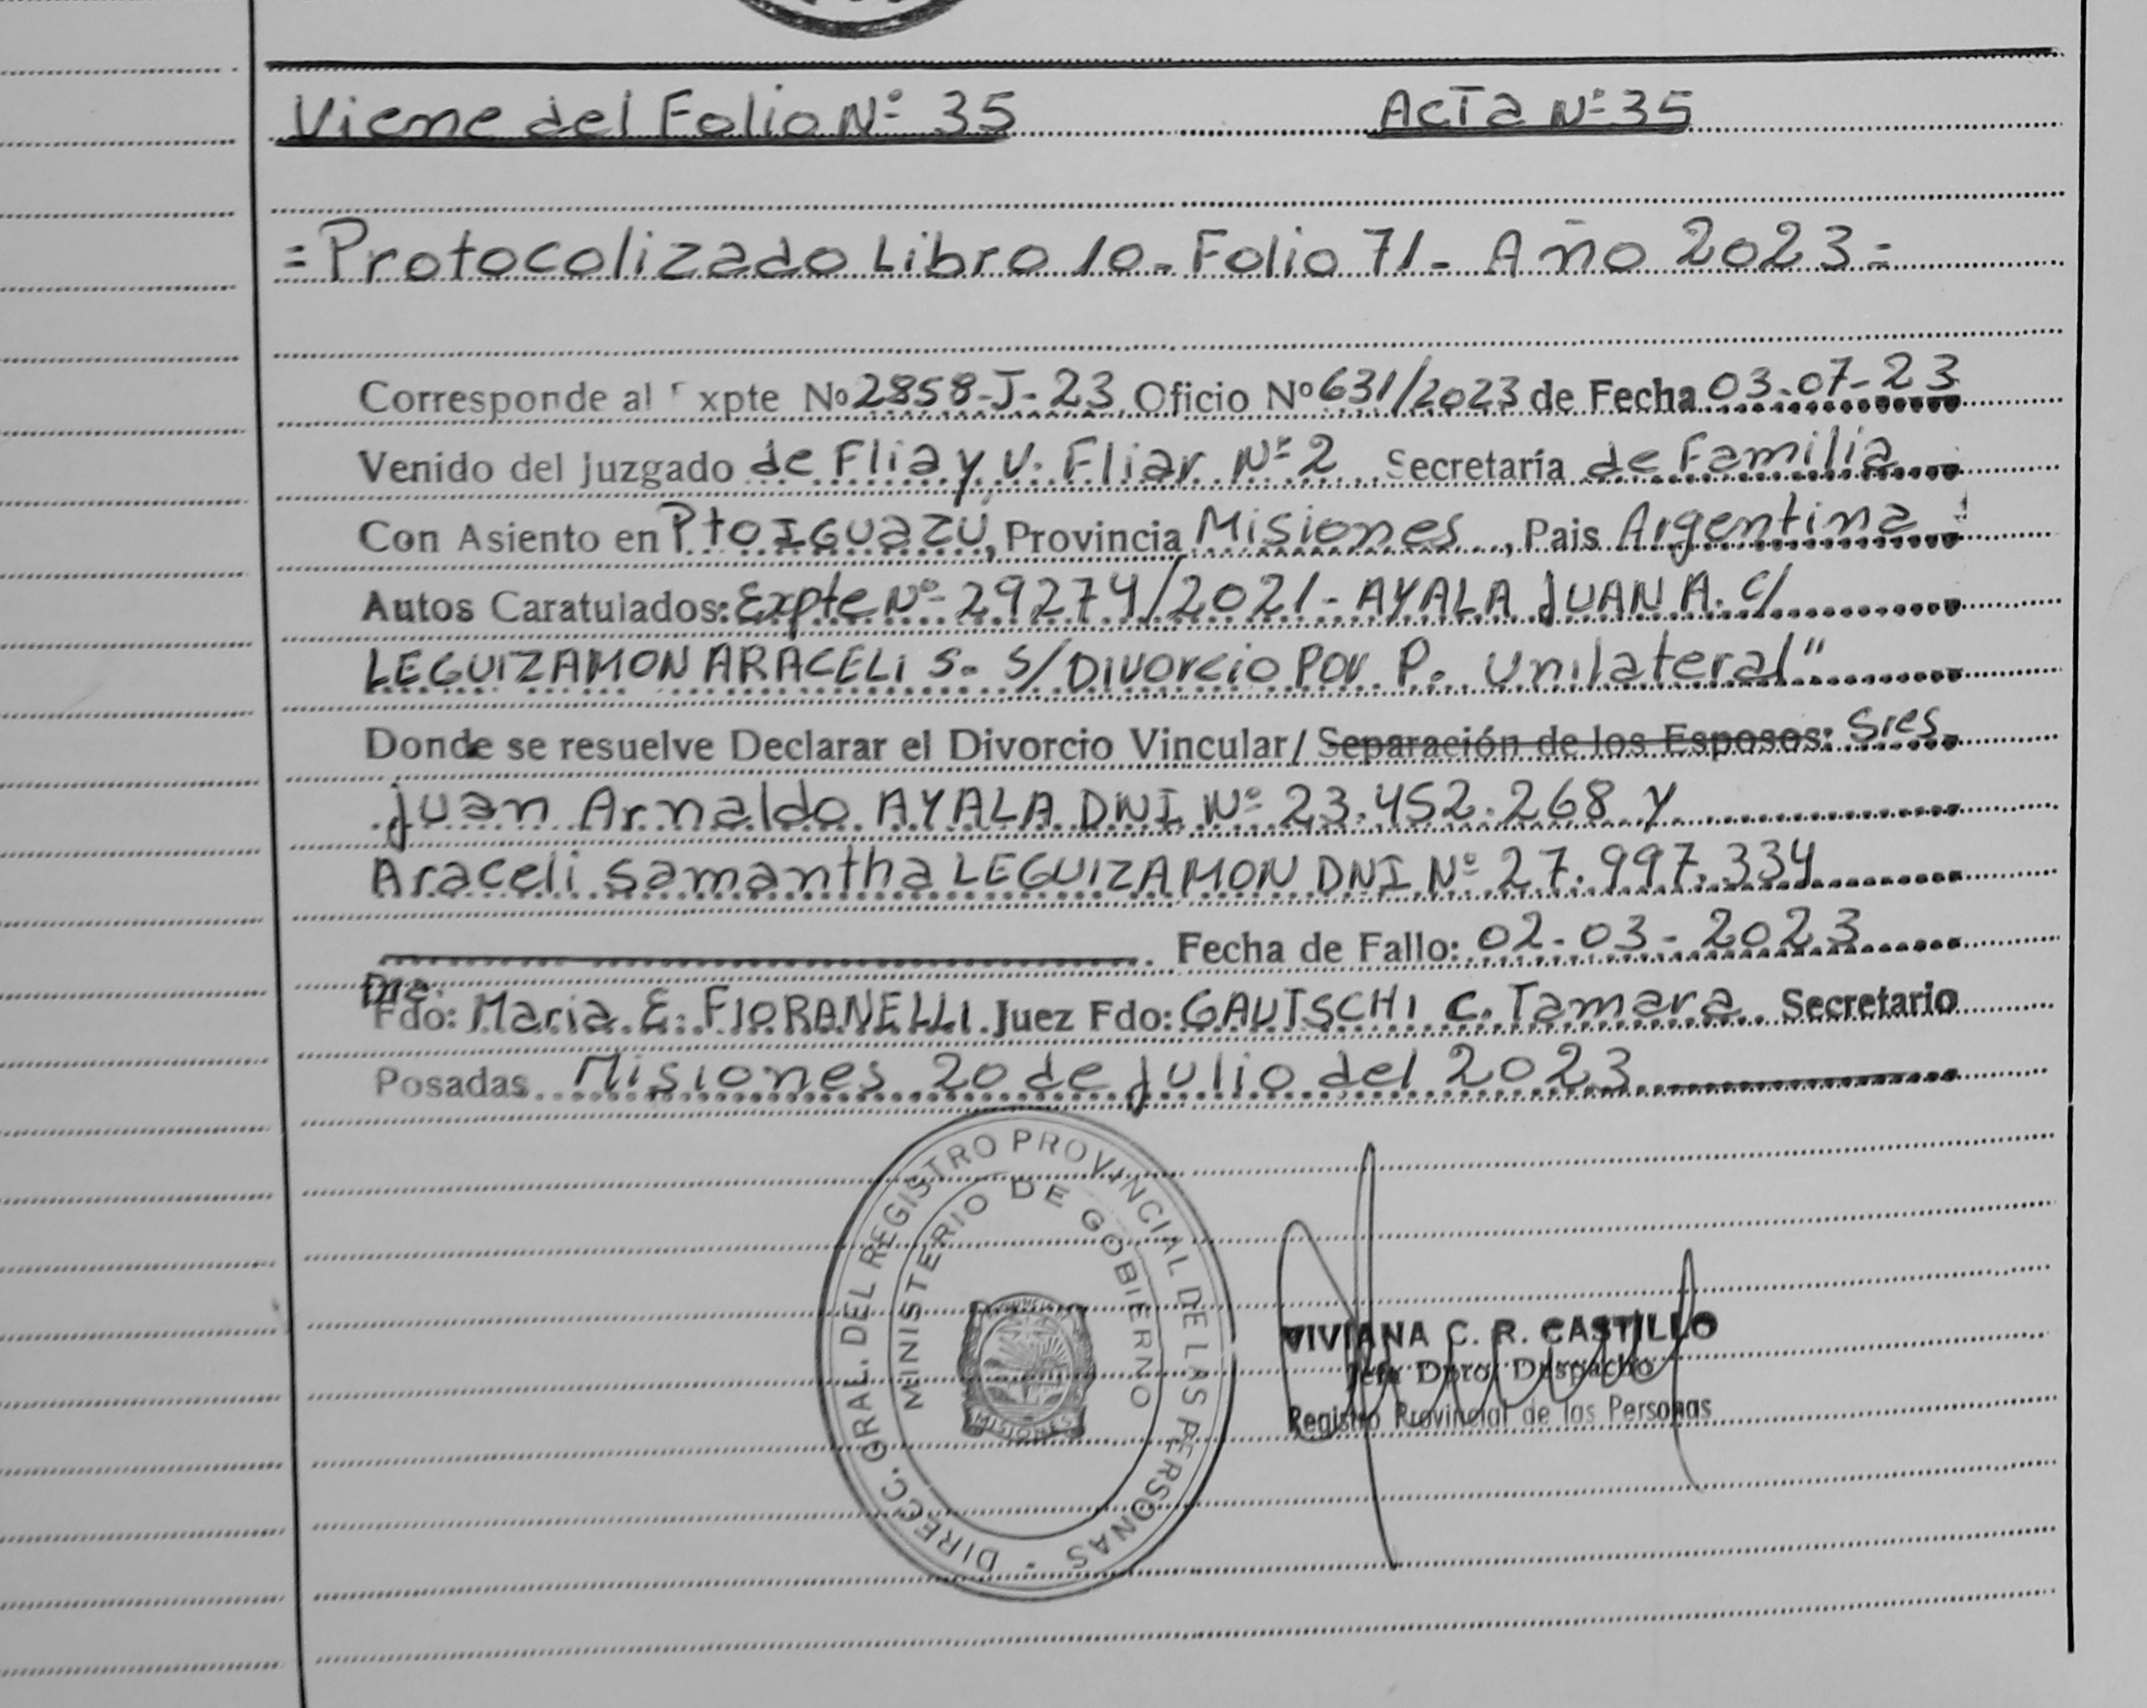 Viene del Folio Nº 35 Acta Nº 35
= Protocolizado Libro 10 - Folio 71 - Año 2023 =
Corresponde al Expte Nº 2858-J-23 Oficio Nº 631/2023 de Fecha 03-07-23
Venido del Juzgado de Flia y V. Fliar Nº 2 Secretaría de Familia
Con Asiento en Pto Iguazú, Provincia Misiones, Pais Argentina
Autos Caratulados: Expte Nº 29274/2021 - AYALA JUAN A. c/
LEGUIZAMON ARACELI S. S/ Divorcio Por P. Unilateral"
Donde se resuelve Declarar el Divorcio Vincular / Separación de los Esposos: Sres
Juan Arnaldo AYALA DNI Nº 23.452.268 y
Araceli Samantha LEGUIZAMON DNI Nº 27.997.334
Fecha de Fallo: 02-03-2023
Dra.
Fdo: Maria E. FIORANELLI Juez Fdo: GAUTSCHI C. Tamara Secretario
Posadas Misiones 20 de Julio del 2023
DIRECC. GRAL. DEL REGISTRO PROVINCIAL DE LAS PERSONAS
MINISTERIO DE GOBIERNO
MISIONES
VIVIANA C. R. CASTILLO
Jefa Dpto. Despacho
Registro Provincial de las Personas